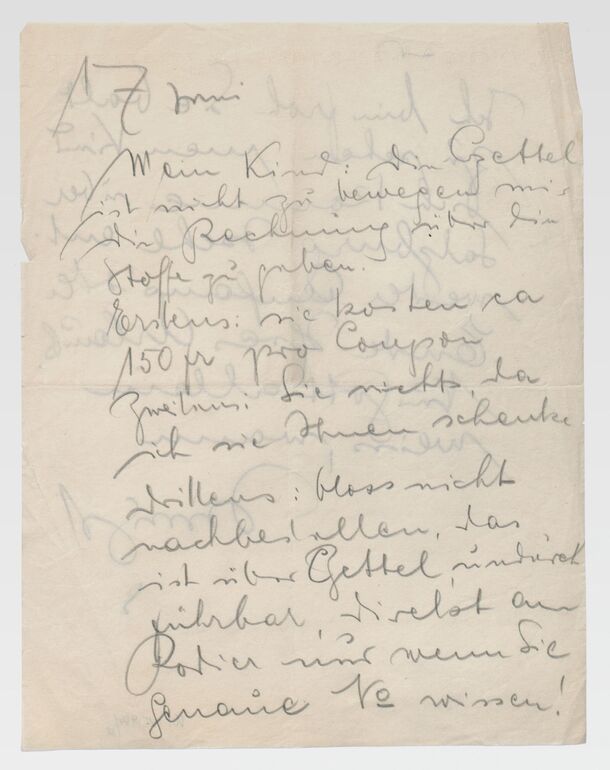 17 Juni
Mein Kind: die Czettel
ist nicht zu bewegen mir
die Rechnung über die
Stoffe zu geben.
Erstens: sie kosten ca
150 fr pro Coupon
Zweitens: Sie nichts, da
ich sie Ihnen schenke
drittens: bloss nicht
nachbestellen, das
ist über Czettel undurch
führbar, direkt an
Rodier nur wenn Sie
genaue No wissen!